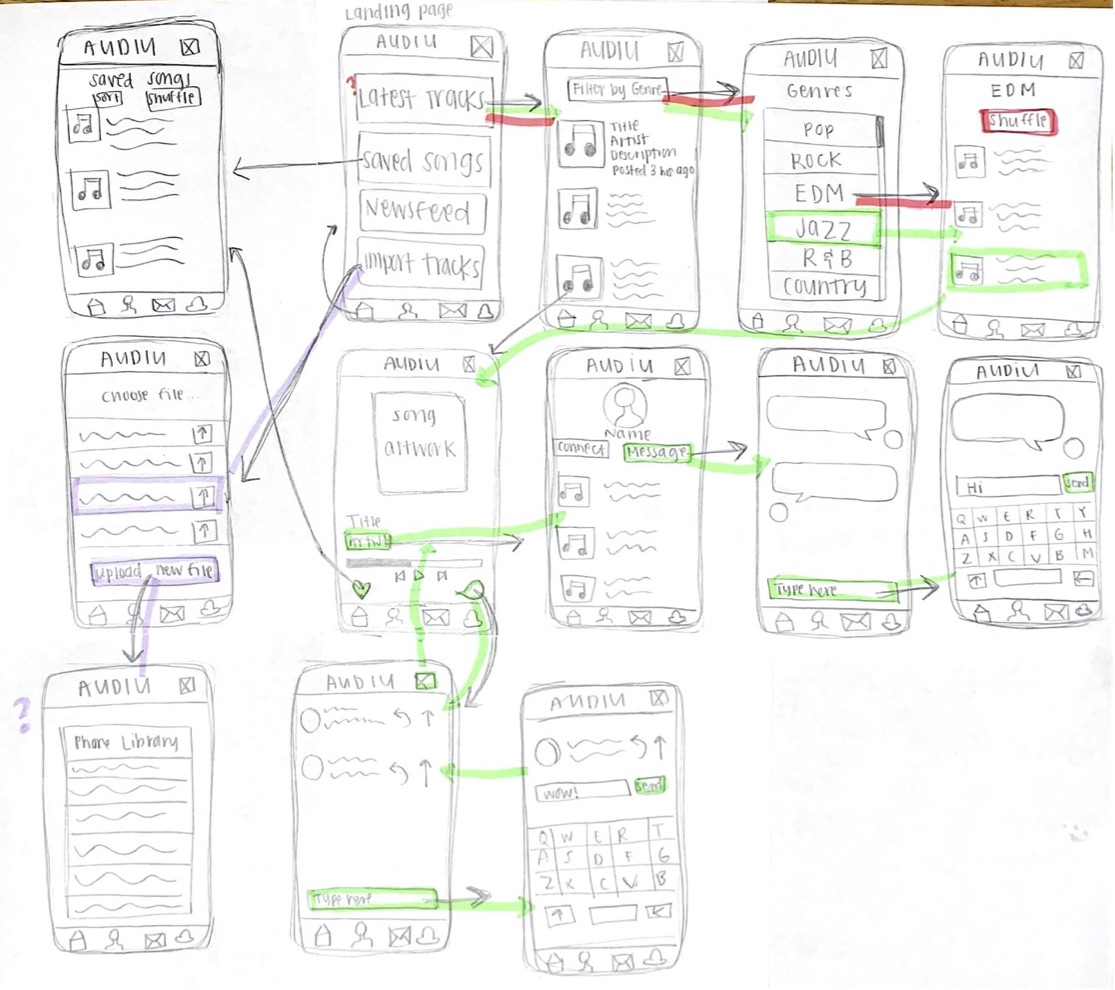 Landing page
AUDIU
saved songs
sort
shuffle
AUDIU
?
Latest Tracks
saved songs
Newsfeed
import tracks
AUDIU
Filter by Genre
Title
Artist
Description
Posted 3 hrs ago
AUDIU
Genres
POP
ROCK
EDM
Jazz
R&B
COUNTRY
AUDIU
EDM
Shuffle
AUDIU
choose file...
upload new file
AUDIU
song
artwork
Title
Artist
AUDIU
Name
connect
Message
AUDIU
Type here
AUDIU
Hi
send
Q W E R T Y
A S D F G H
Z X C V B M
?
AUDIU
Phone Library
AUDIU
Type here
AUDIU
wow!
send
Q W E R T
A S D F G
Z X C V B